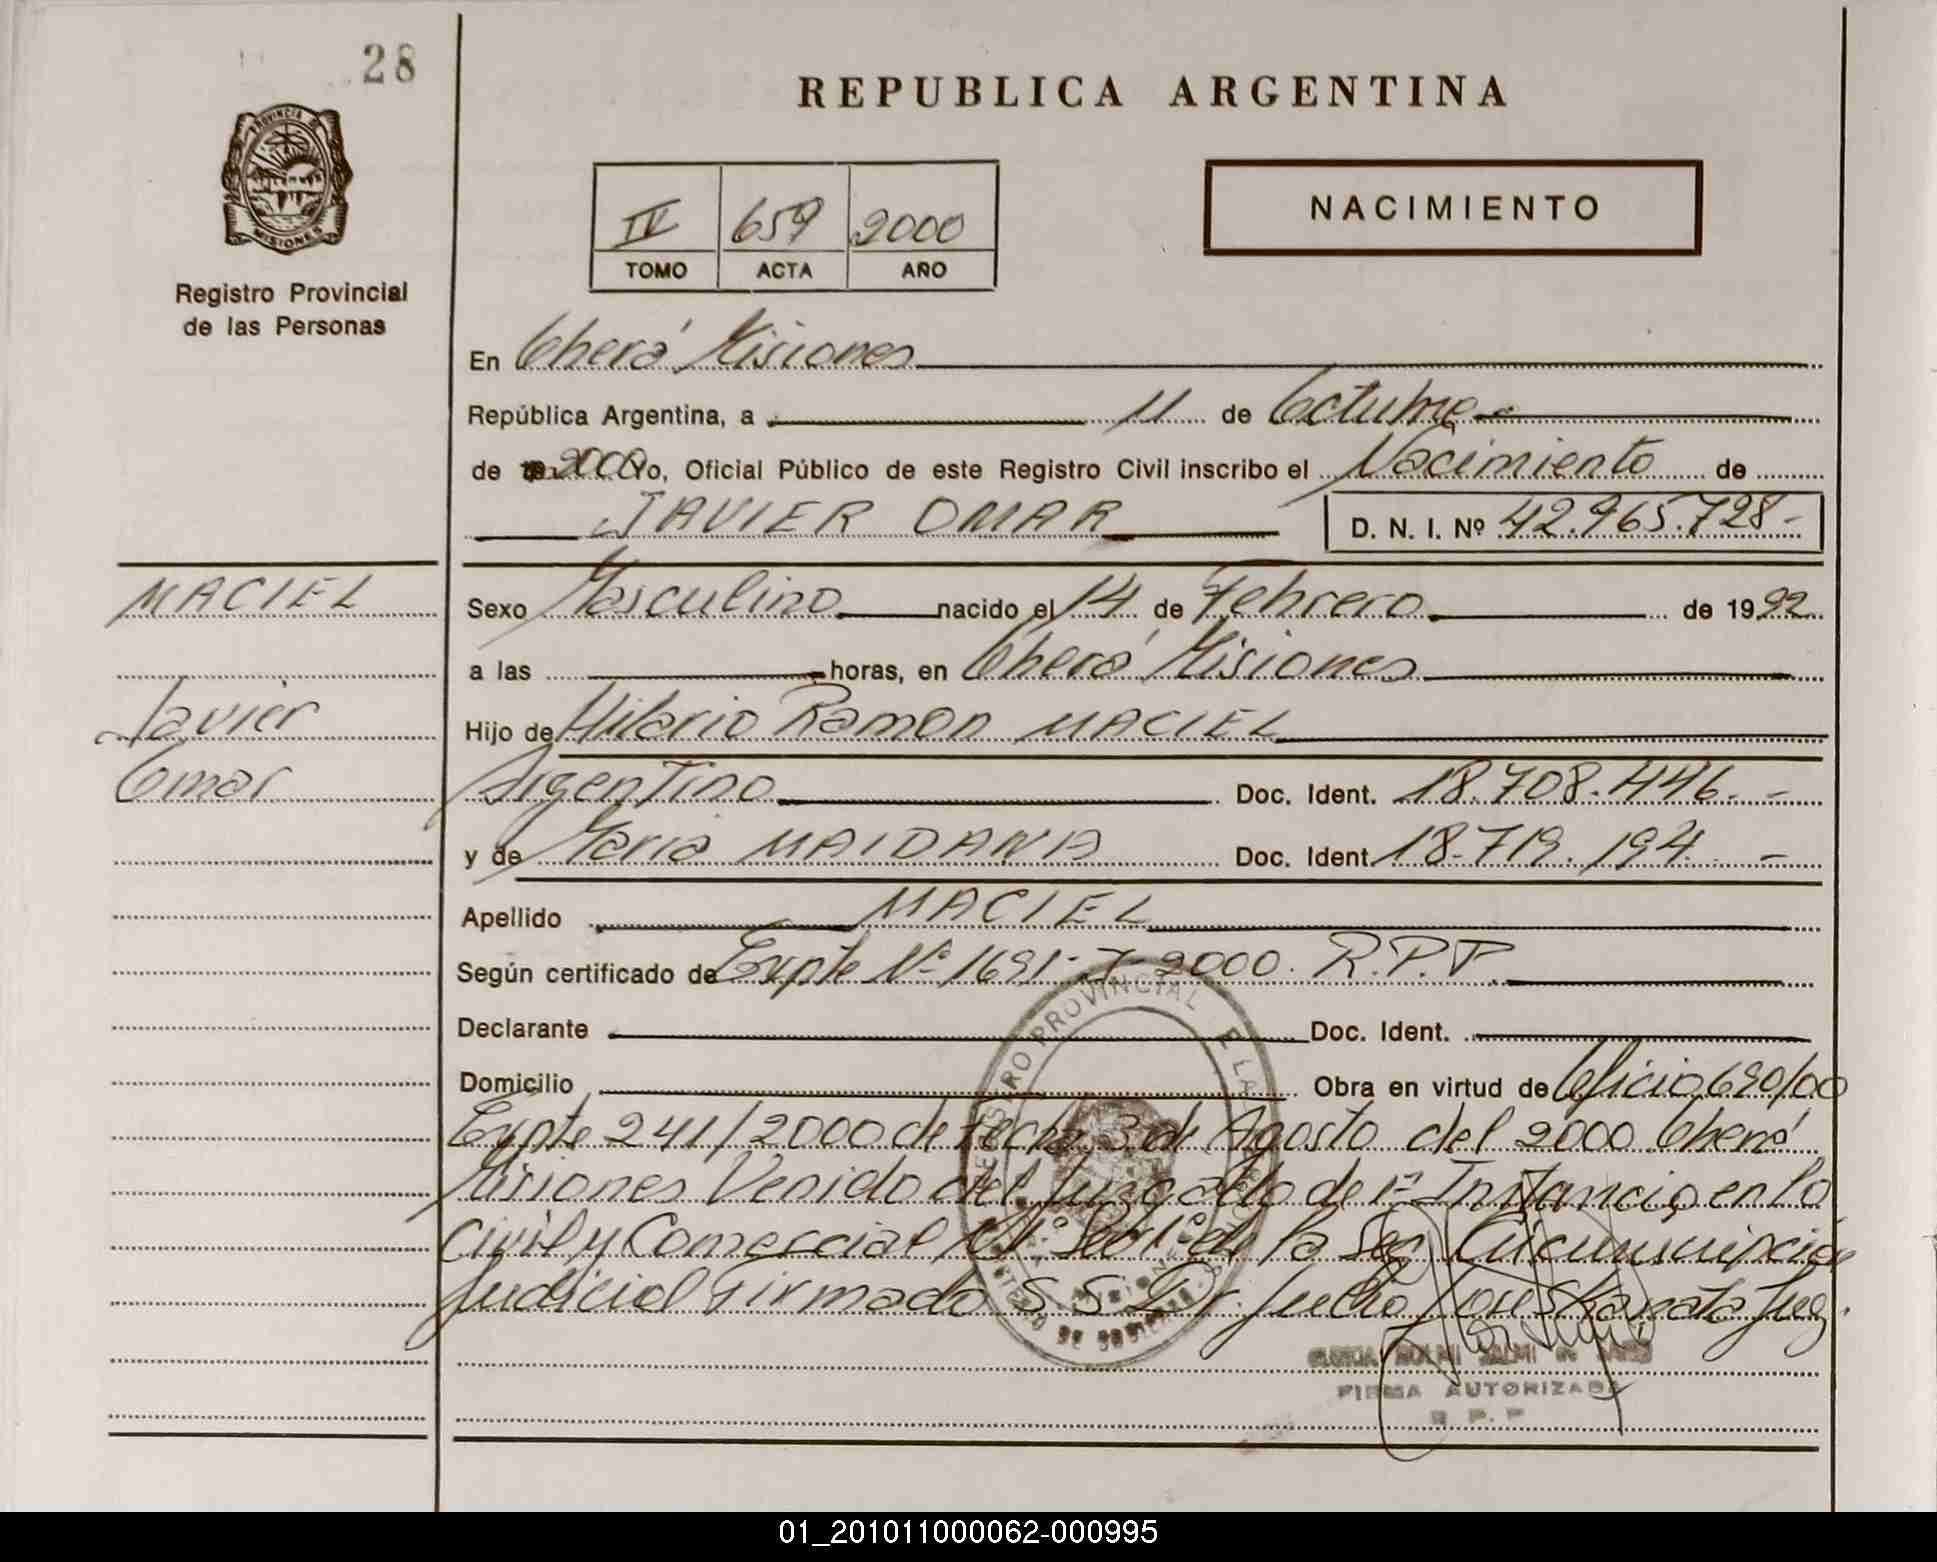 28
REPUBLICA ARGENTINA
PROVINCIA DE
MISIONES
Registro Provincial
de las Personas
IV 659 2000
TOMO ACTA AÑO
NACIMIENTO
En Oberá Misiones
República Argentina, a 11 de Octubre
de 2000 Yo, Oficial Público de este Registro Civil inscribo el Nacimiento de
JAVIER OMAR D. N. I. Nº 42.965.728-
MACIEL
Javier
Omar
Sexo Masculino nacido el 14 de Febrero de 1992
a las horas, en Oberá Misiones
Hijo de Hilario Ramon MACIEL
Argentino Doc. Ident. 18.708.446.-
y de Maria MAIDANA Doc. Ident. 18.719.194.-
Apellido MACIEL
Según certificado de Expte Nº 1691-7-2000. R.P.P.
Declarante Doc. Ident.
Domicilio Obra en virtud de Oficio 690/00
Expte 241/2000 de Fecha 3 de Agosto del 2000 Oberá
Misiones Venido del Juzgado de 1ª Instancia en lo
Civil y Comercial Nº 1 de la Seg. Circunscripción
Judicial Firmado S S Dr. Julio Juez.
REGISTRO PROVINCIAL DE LAS
FIRMA AUTORIZADA
R P.P
01_201011000062-000995